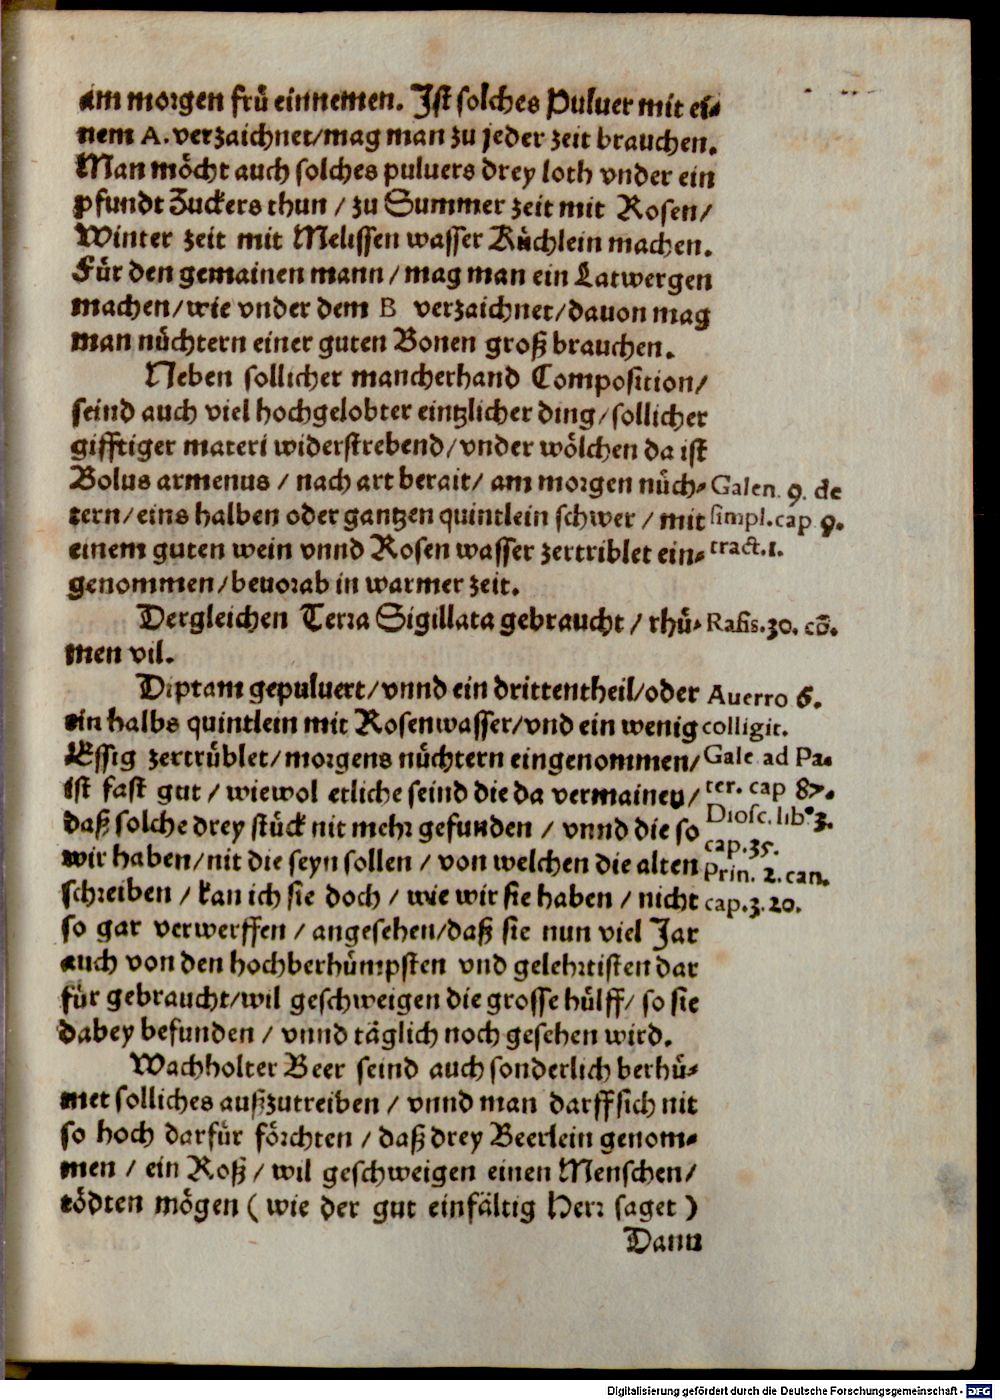 am morgen frü einnemen. Jst solches Puluer mit ei⸗
nem A. verzaichnet/mag man zu jeder zeit brauchen.
Man möcht auch solches puluers drey loth vnder ein
pfundt Zuckers thun / zu Summer zeit mit Rosen/
Winter zeit mit Melissen wasser Küchlein machen.
Für den gemainen mann / mag man ein Latwergen
machen/wie vnder dem B verzaichnet/dauon mag
man nüchtern einer guten Bonen groß brauchen.
Neben sollicher mancherhand Composition/
seind auch viel hochgelobter eintzlicher ding/sollicher
gifftiger materi widerstrebend/vnder wölchen da ist
Bolus armenus / nach art berait/ am morgen nüch⸗
tern/eins halben oder gantzen quintlein schwer / mit
einem guten wein vnnd Rosen wasser zertriblet ein⸗
genommen/beuorab in warmer zeit.
Galen. 9. de
simpl.cap 9.
tract.1.
Dergleichen Terra Sigillata gebraucht / rhü⸗
men vil.
Rasis.30. cō.
Diptam gepuluert/vnnd ein drittentheil/oder
ein halbs quintlein mit Rosenwasser/vnd ein wenig
Essig zertrüblet/morgens nüchtern eingenommen/
ist fast gut / wiewol etliche seind die da vermainen/
daß solche drey stück nit mehr gefunden / vnnd die so
wir haben/nit die seyn sollen / von welchen die alten
schreiben / kan ich sie doch / wie wir sie haben / nicht
so gar verwerffen / angesehen/daß sie nun viel Jar
auch von den hochberhümpsten vnd gelehrtisten dar
für gebraucht/wil geschweigen die grosse hülff/ so sie
dabey befunden / vnnd täglich noch gesehen wird.
Auerro 6.
colligit.
Gale ad Pa⸗
ter. cap 87.
Diosc.lib.3.
cap.35.
Prin. 2.can.
cap.3.20.
Wachholter Beer seind auch sonderlich berhü⸗
met solliches außzutreiben / vnnd man darff sich nit
so hoch darfür förchten / daß drey Beerlein genom⸗
men / ein Roß / wil geschweigen einen Menschen/
tödten mögen ( wie der gut einfältig Herr saget )
Dann
Digitalisierung gefördert durch die Deutsche Forschungsgemeinschaft - DFG